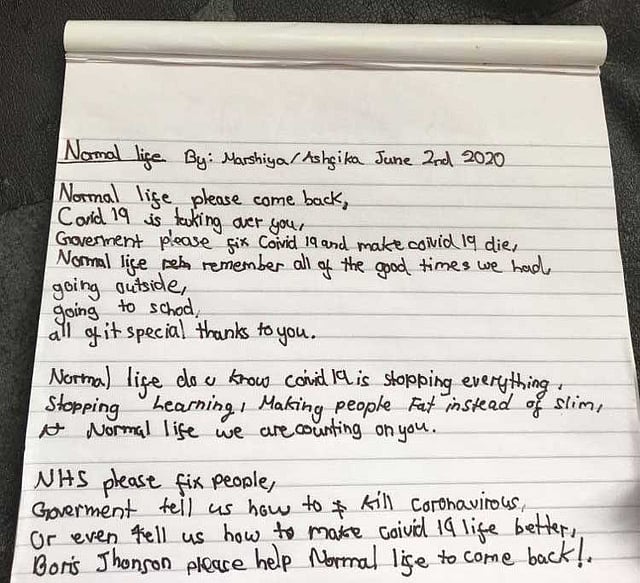 Normal life By: Marshiya/Ashgika June 2nd 2020
Normal life please come back,
Covid 19 is taking over you,
Goverment please fix Coivid 19 and make coivid 19 die,
Normal life remember all of the good times we had,
going outside,
going to school,
all of it special thanks to you.
Normal life do u know coivid 19 is stopping everything,
Stopping Learning, Making people Fat instead of slim,
Normal life we are counting on you.
NHS please fix people,
Goverment tell us how to kill coronavirous,
Or even tell us how to make coivid 19 life better,
Boris Jhonson please help Normal life to come back!.